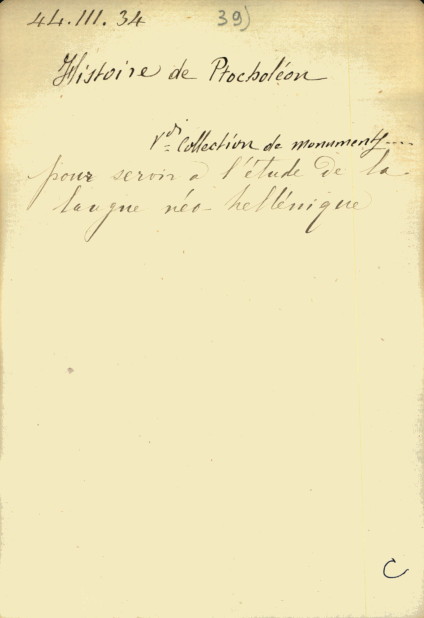 44.III.34 39)
Histoire de Ptocholéon
Vdi Collection de monuments....
pour servir a l'étude de la
langue néo-hellénique
C